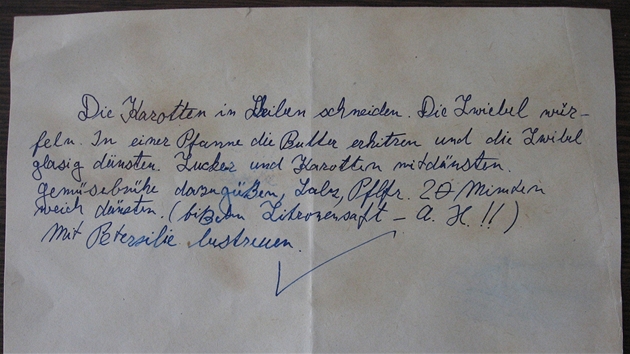 Die Karotten in Sheiben schneiden. Die Zwiebel wür-
feln. In einer Pfanne die Butter erhitzen und die Zwibel
glasig dünsten. Zucker und Karotten mitdünsten.
gemüsebrühe dazugüßen, Salz, Pfffr. 20 Minuten
weich dünsten. (bißchen Zitronensaft – A. H. !!)
Mit Petersilie bestreuen.